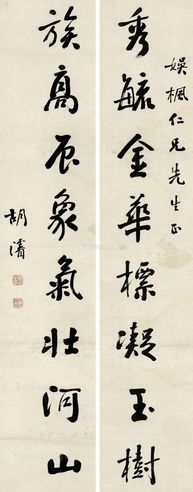 娱枫仁兄先生正
秀毓金華標凝玉樹
族高辰象氣壯河山
胡濬